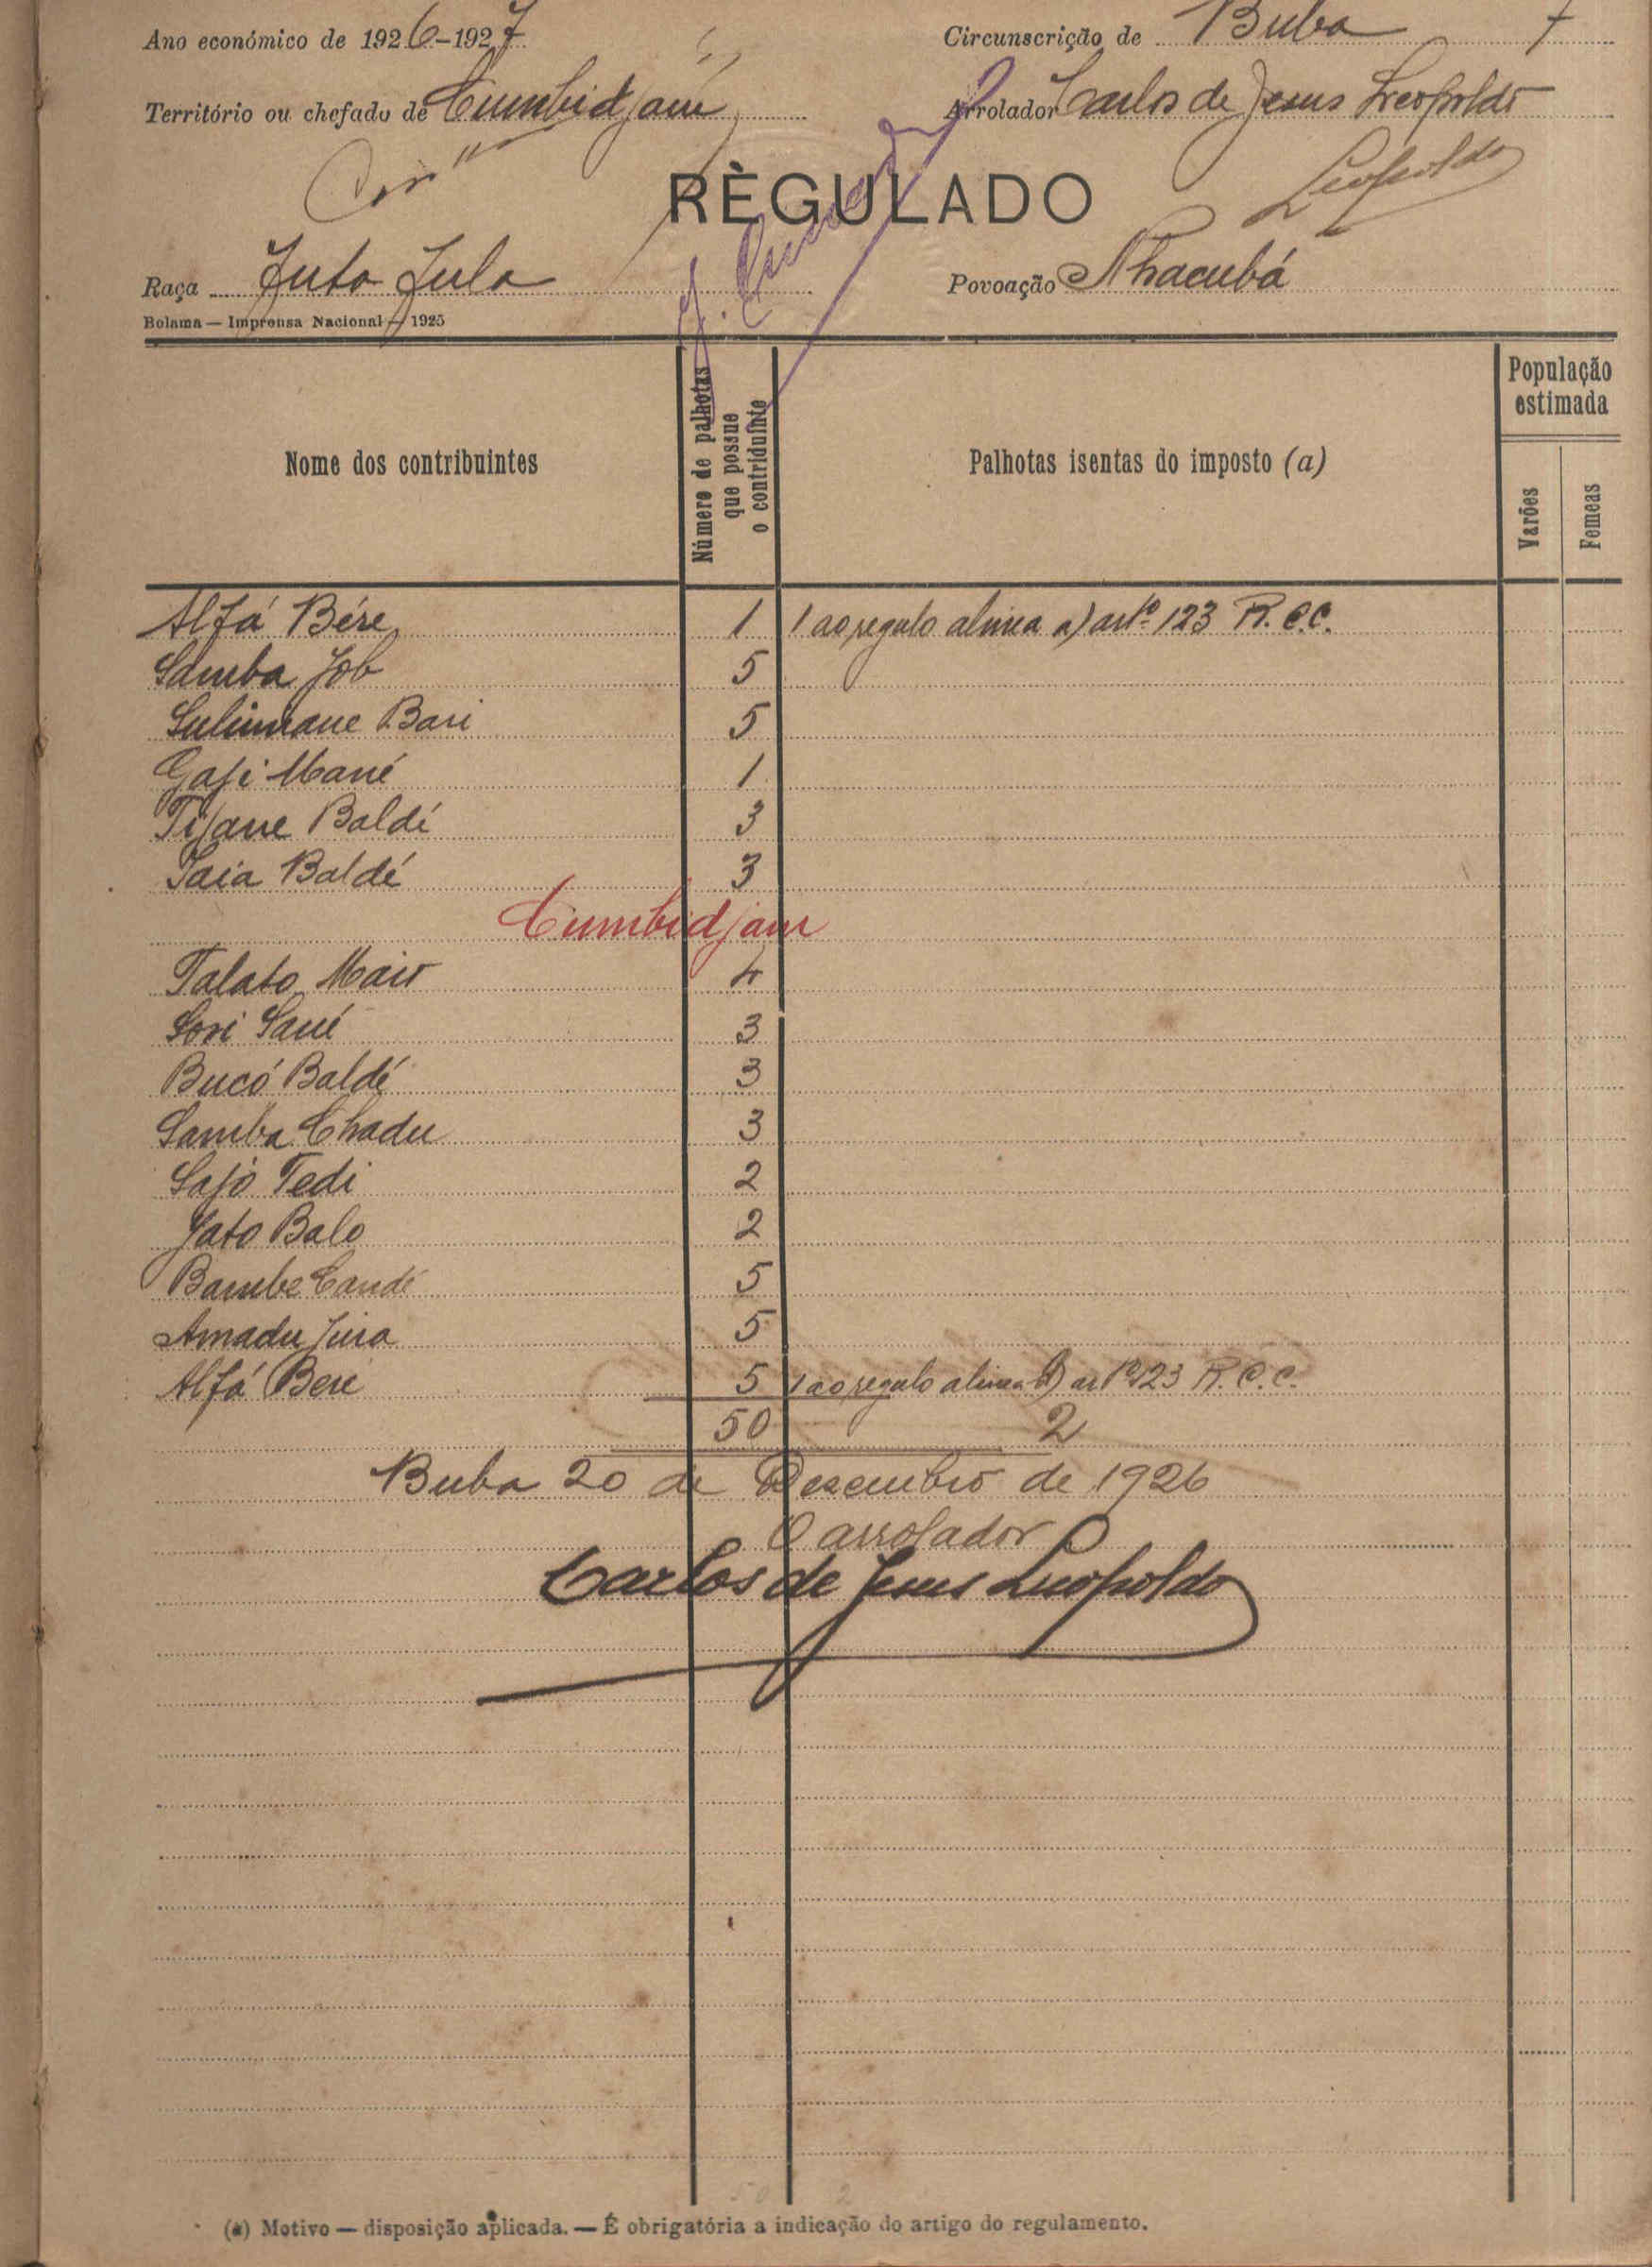 Ano económico de 1926-1927 Circunscrição de Buba 7
Território ou chefado de Cumbidjam Arrolador Carlos de Jesus Leopoldo
Leopoldo
RÈGULADO
Raça Futo Fula Povoação Nhacubá
Bolama — Imprensa Nacional — 1925
Nome dos contribuintes Número de palhotas que possue o contriduinte Palhotas isentas do imposto (a) População estimada
Varões Femeas
Alfá Bére 1 1 ao regulo alinea a) artº 123 R.C.C.
Samba Job 5
Sulimane Bari 5
Gafi Mané 1
Tijane Baldé 3
Saia Baldé 3
Cumbidjam
Talato Maio 4
Sori Sané 3
Bucó Baldé 3
Samba Chadu 3
Sajo Tedi 2
Jato Balo 2
Bambe Candé 5
Amadu Jira 5
Alfá Beré 5 1 ao regulo alinea artº 123 R.C.C.
50 2
Buba 20 de Dezembro de 1926
O arrolador
Carlos de Jesus Leopoldo
(a) Motivo — disposição aplicada. — É obrigatória a indicação do artigo do regulamento.